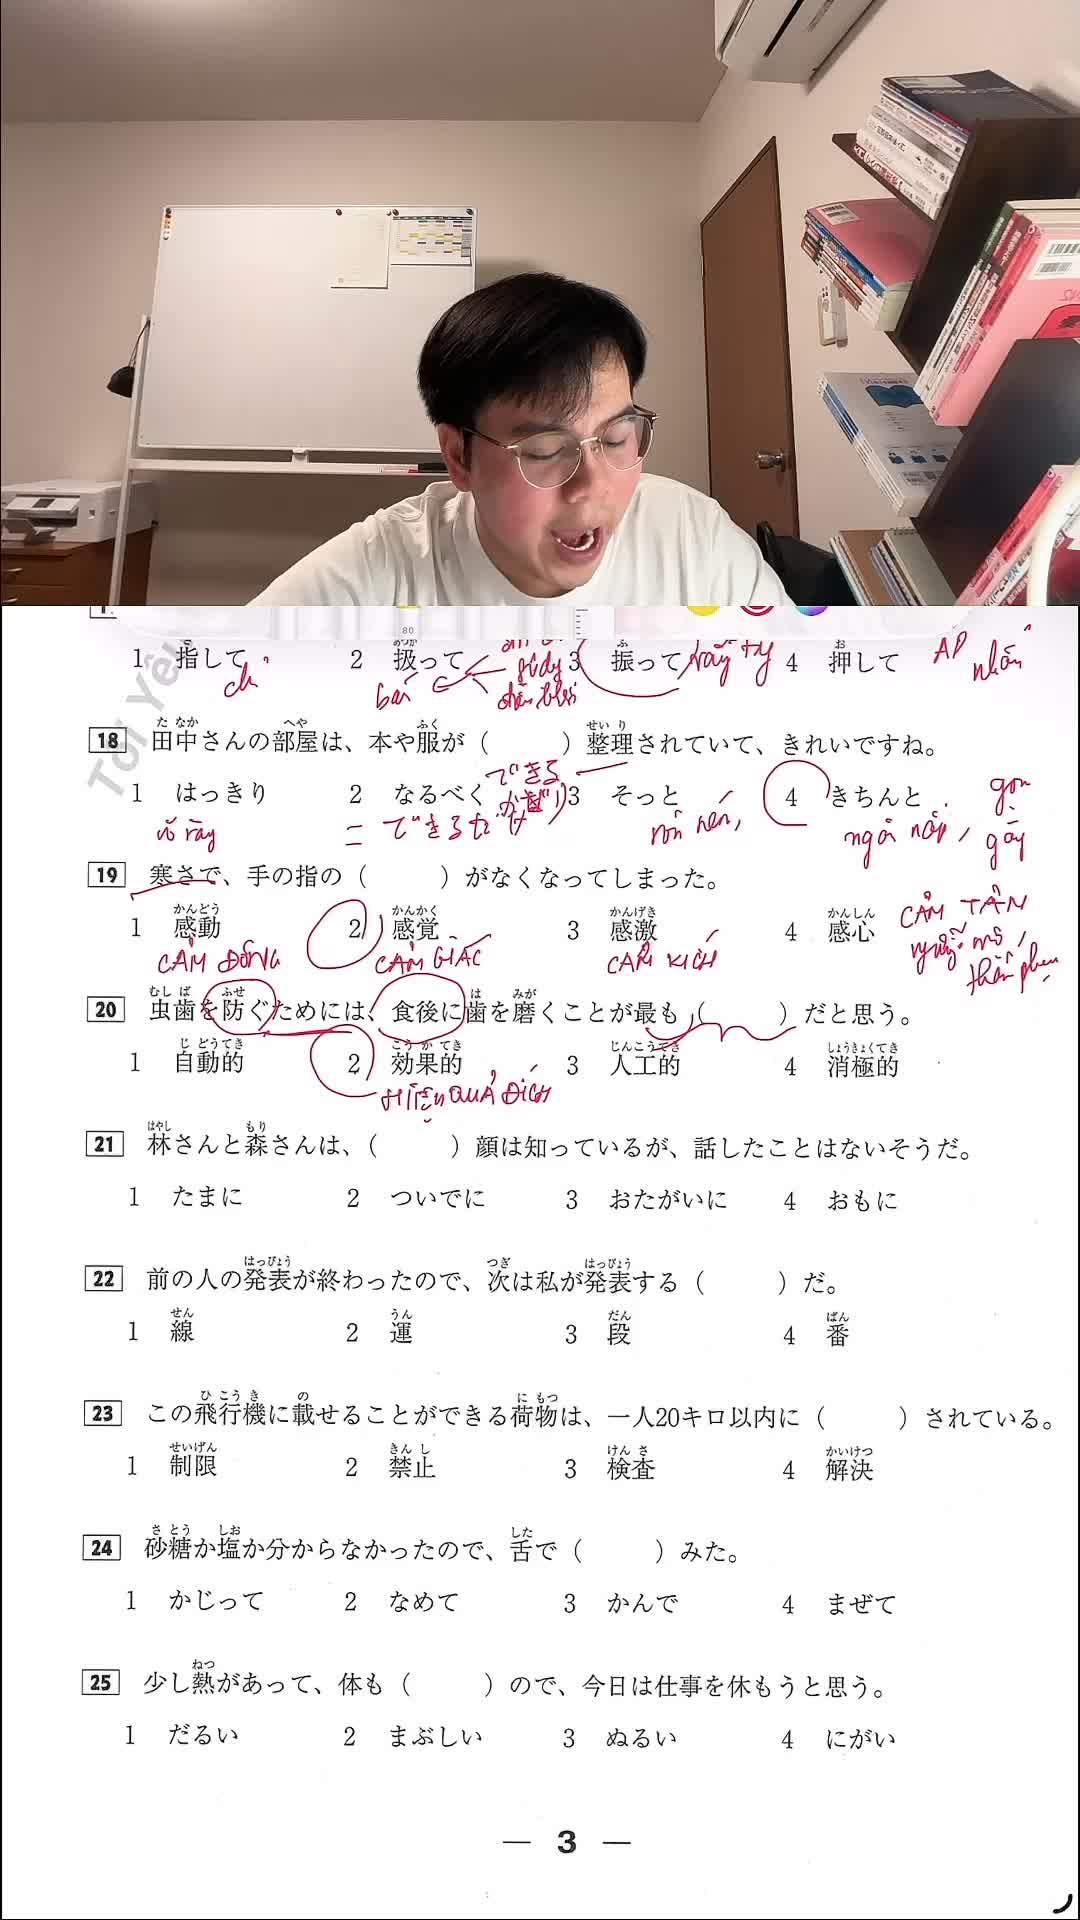 80
1 指して 2 扱って 3 振って 4 押して
chỉ
AP
nhấn
18 田中さんの部屋は、本や服が（　　）整理されていて、きれいですね。
1 はっきり 2 なるべく 3 そっと 4 きちんと
できる
かぎり
= できるだけ
rõ ràng
nón nén,
ngăn nắp,
gọn
gàng
19 寒さで、手の指の（　　）がなくなってしまった。
1 感動 2 感覚 3 感激 4 感心
かんどう かんかく かんげき かんしん
CẢM ĐỘNG
CẢM GIÁC
CẢM KÍCH
CẢM TÂM
ngưỡng mộ
thán phục
20 虫歯を防ぐためには、食後に歯を磨くことが最も（　　）だと思う。
1 自動的 2 効果的 3 人工的 4 消極的
HIỆU QUẢ ĐÍCH
21 林さんと森さんは、（　　）顔は知っているが、話したことはないそうだ。
1 たまに 2 ついでに 3 おたがいに 4 おもに
22 前の人の発表が終わったので、次は私が発表する（　　）だ。
1 線 2 運 3 段 4 番
23 この飛行機に載せることができる荷物は、一人20キロ以内に（　　）されている。
1 制限 2 禁止 3 検査 4 解決
24 砂糖か塩か分からなかったので、舌で（　　）みた。
1 かじって 2 なめて 3 かんで 4 まぜて
25 少し熱があって、体も（　　）ので、今日は仕事を休もうと思う。
1 だるい 2 まぶしい 3 ぬるい 4 にがい
— 3 —